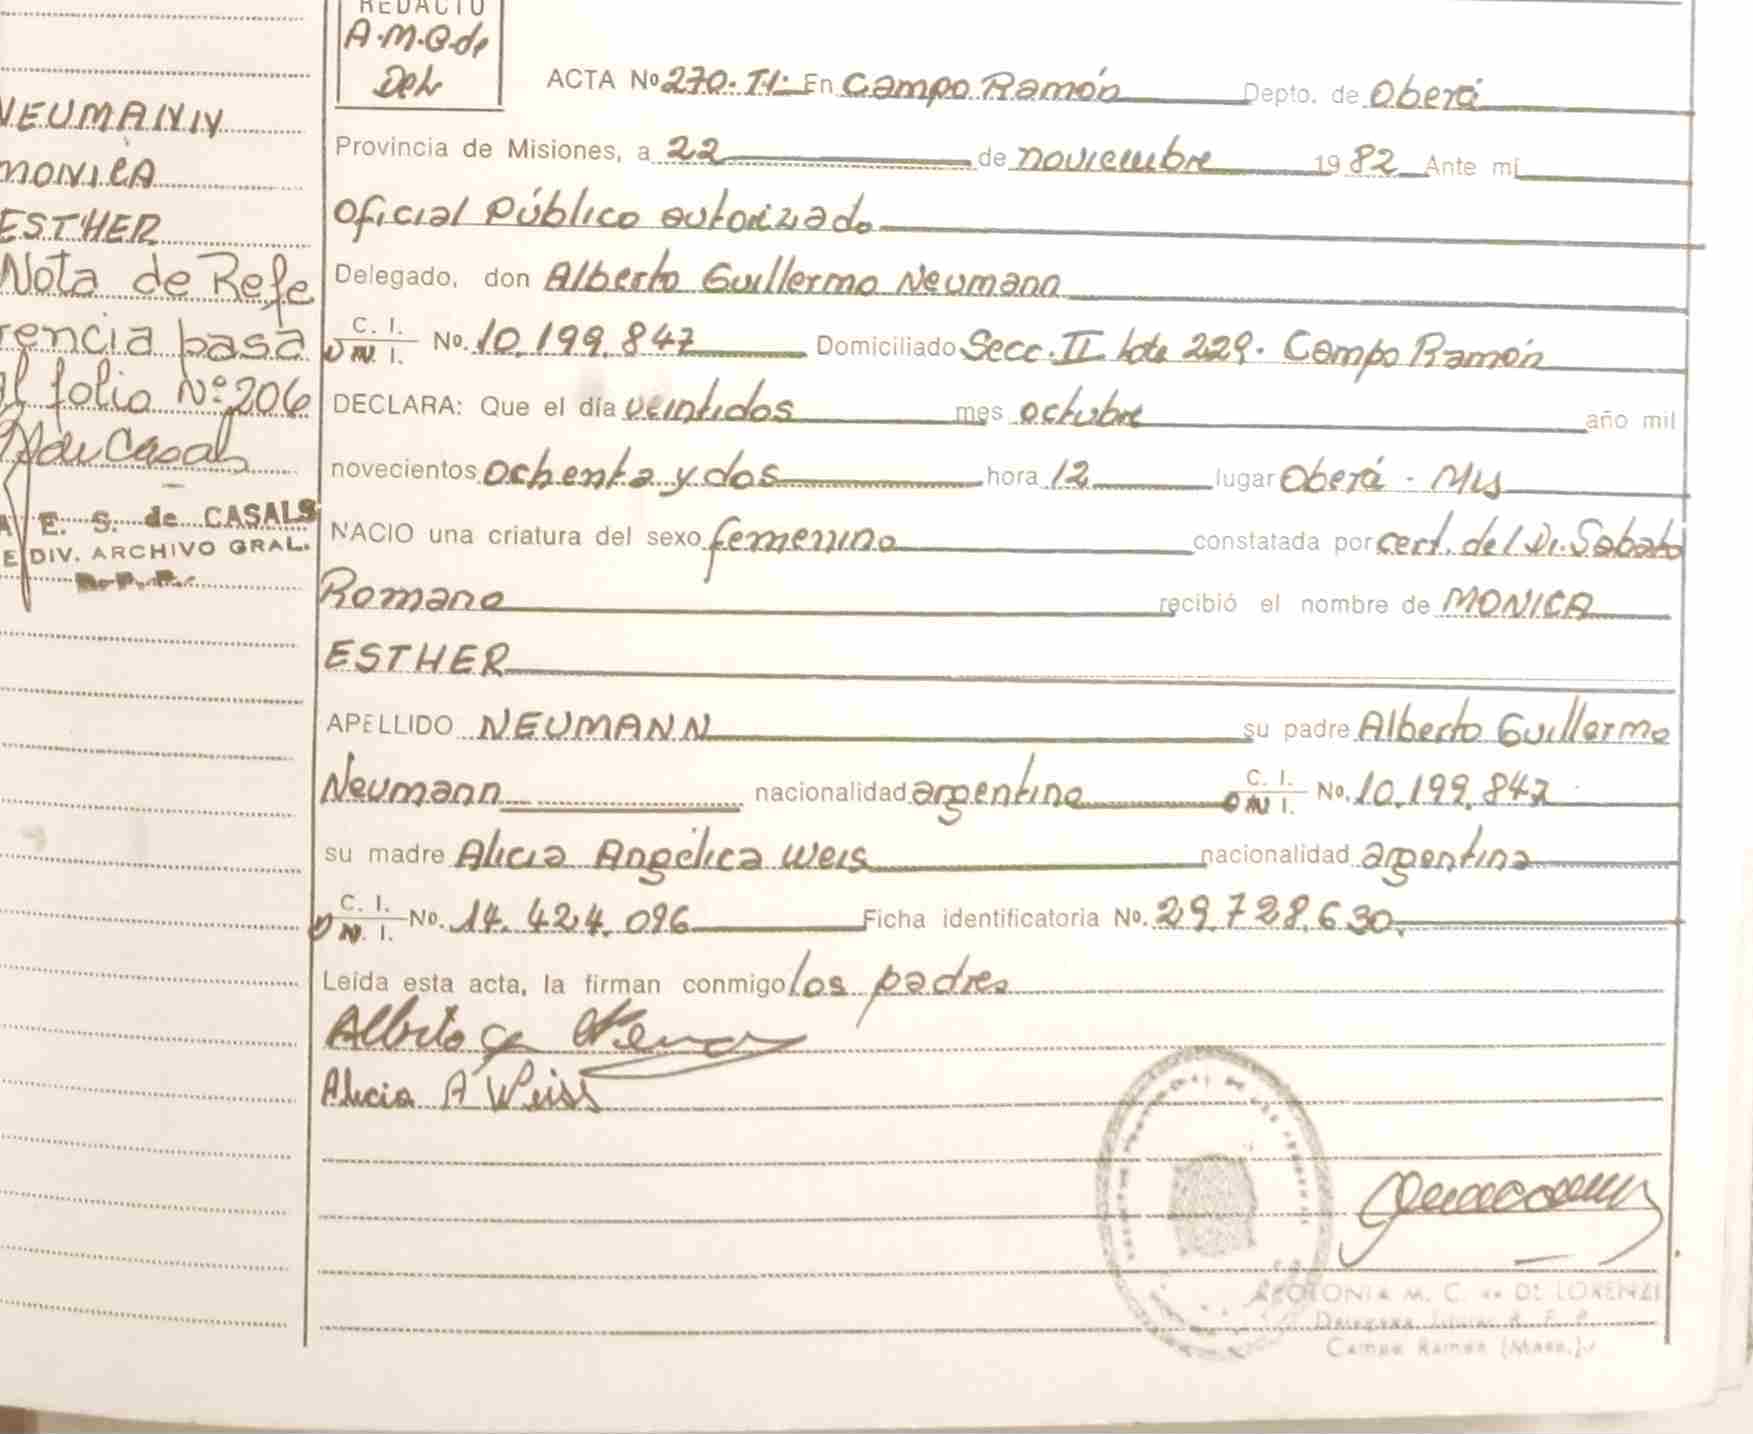 NEUMANN
MONICA
ESTHER
Nota de Refe
rencia pasa
al folio Nº 206
E. S. de CASALS
DIV. ARCHIVO GRAL.
R. P. P.
REDACTO
A.M.C de
Del
ACTA Nº 270. TI. En Campo Ramón Depto. de Oberá
Provincia de Misiones, a 22 de noviembre 1982 Ante mí
Oficial Público autorizado
Delegado, don Alberto Guillermo Neumann
C. I.
D N. I. No. 10.199.847 Domiciliado Secc. II lote 229. Campo Ramón
DECLARA: Que el día veintidos mes octubre año mil
novecientos ochenta y dos hora 12 lugar Oberá - Mis
NACIO una criatura del sexo femenino constatada por cert. del Dr. Sabato
Romano recibió el nombre de MONICA
ESTHER
APELLIDO NEUMANN su padre Alberto Guillermo
Neumann nacionalidad argentina C. I. D N. I. No. 10.199.847
su madre Alicia Angélica Weis nacionalidad argentina
C. I. D N. I. No. 14.424.096 Ficha identificatoria No. 29.728.630.
Leída esta acta, la firman conmigo los padres
Alberto G Neu
Alicia A Weiss
APOLONIA M. C. de DE LORENZI
Campo Ramón (Mnes.)